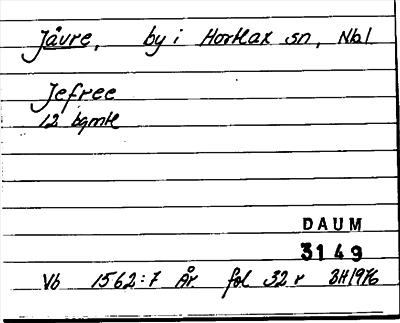 Jåvre, by i Hortlax sn, Nbl.
Jefree
12 bgmtl
DAUM
3149
Vb 1562:7 År fol 32 r BH1976